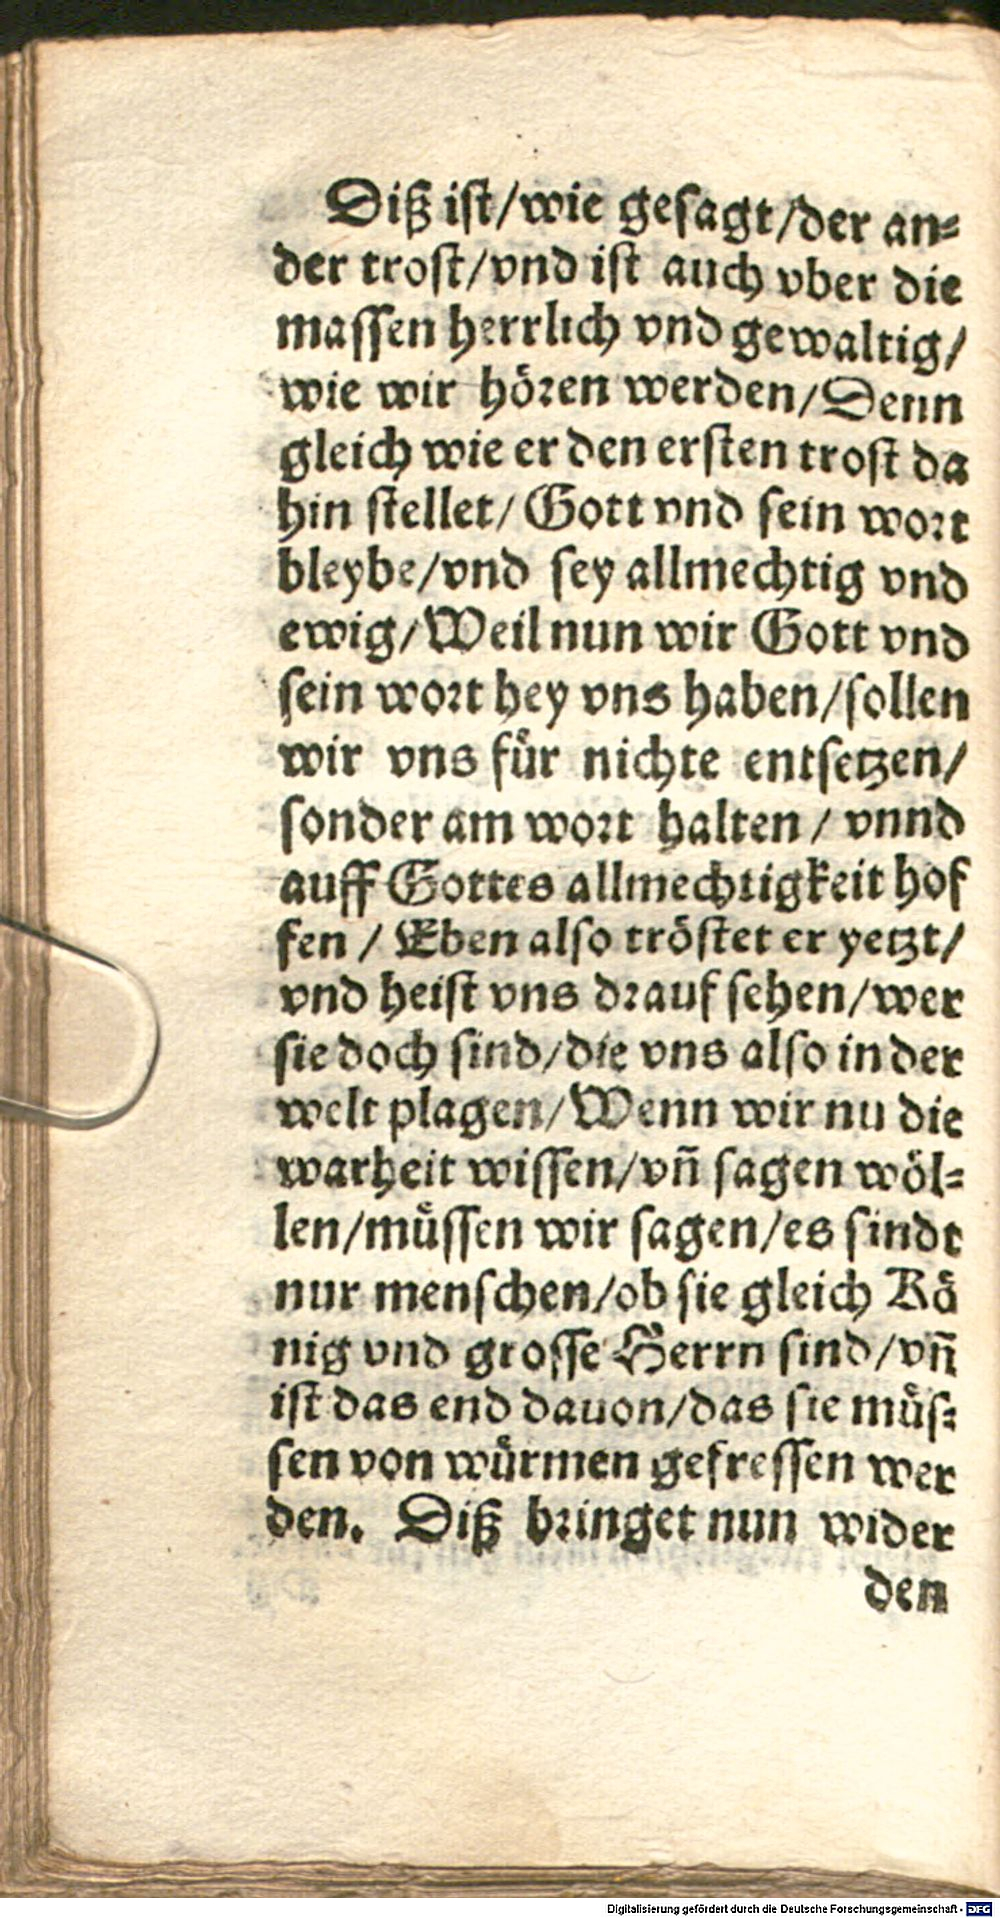 Diß ist/wie gesagt/der an⸗
der trost/vnd ist auch vber die
massen herrlich vnd gewaltig/
wie wir hören werden/Denn
gleich wie er den ersten trost da
hin stellet/Gott vnd sein wort
bleybe/vnd sey allmechtig vnd
ewig/Weil nun wir Gott vnd
sein wort bey vns haben/sollen
wir vns für nichte entsetzen/
sonder am wort halten/vnnd
auff Gottes allmechtigkeit hof
fen/Eben also tröstet er yetzt/
vnd heist vns drauf sehen/wer
sie doch sind/die vns also in der
welt plagen/Wenn wir nu die
warheit wissen/vñ sagen wöl⸗
len/müssen wir sagen/es sindt
nur menschen/ob sie gleich Kö
nig vnd grosse Herrn sind/vñ
ist das end dauon/das sie müs⸗
sen von würmen gefressen wer
den. Diß bringet nun wider
den
Digitalisierung gefördert durch die Deutsche Forschungsgemeinschaft - DFG